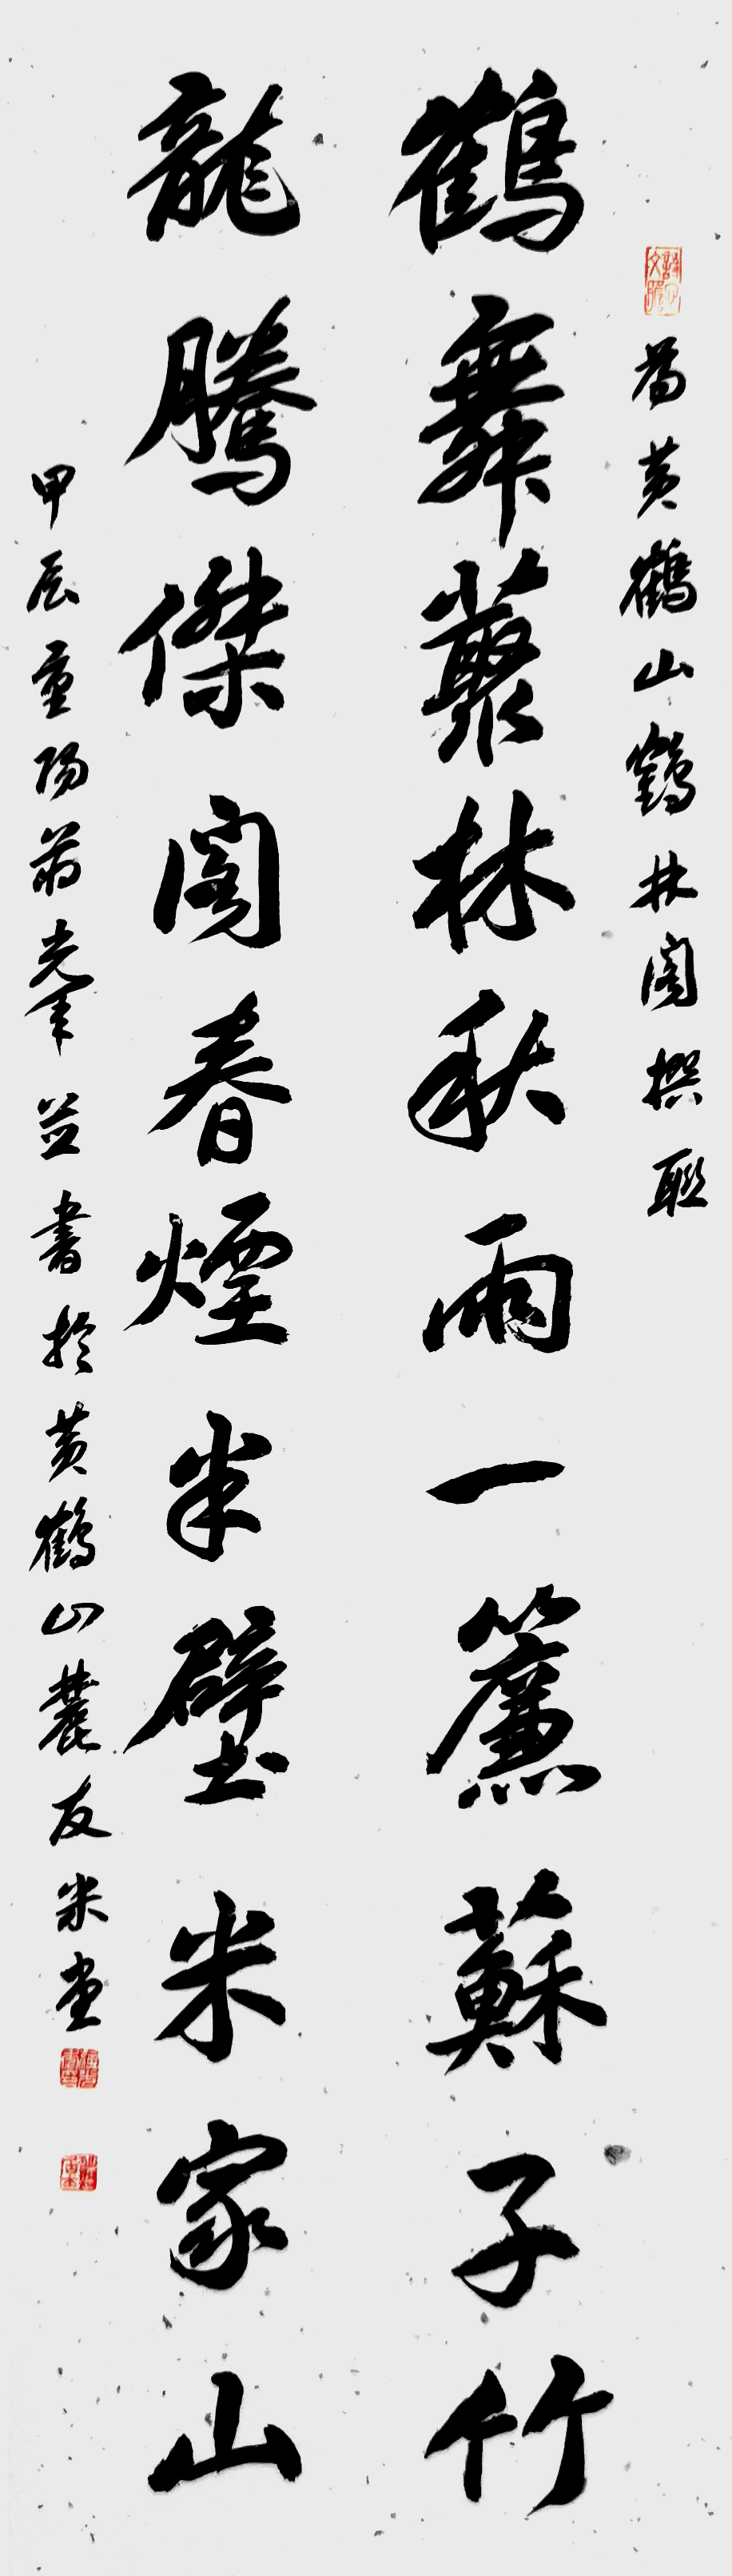 為黃鶴山鶴林閣撰聯
鶴舞叢林秋雨一簾蘇子竹
龍騰傑閣春煙半壁米家山
甲辰重陽前光峯並書於黃鶴山麓友米堂